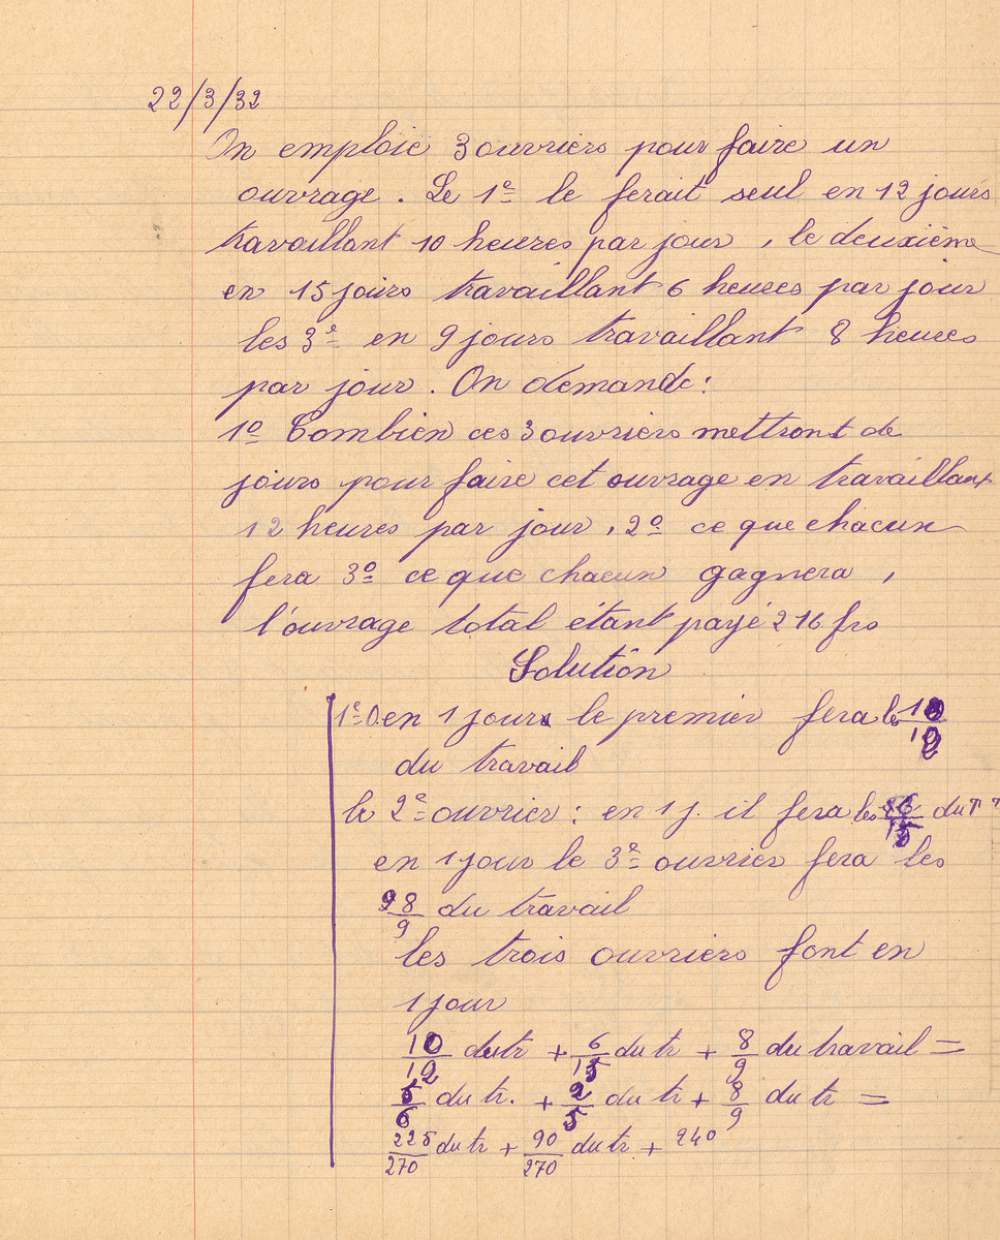 22/3/32
On emploie 3 ouvriers pour faire un
ouvrage. Le 1e le ferait seul en 12 jours
travaillant 10 heures par jour, le deuxième
en 15 jours travaillant 6 heures par jour
les 3e en 9 jours travaillant 8 heures
par jour. On demande:
1o Combien ces 3 ouvriers mettront de
jours pour faire cet ouvrage en travaillant
12 heures par jour, 2o ce que chacun
fera 3o ce que chacun gagnera,
l'ouvrage total étant payé 216 frs
Solution
1e en 1 jour le premier fera le 10/12
du travail
le 2e ouvrier: en 1 j. il fera les 6/15 du
en 1 jour le 3e ouvrier fera les
8/9 du travail
les trois ouvriers font en
1 jour
10/12 du tr + 6/15 du tr + 8/9 du travail =
5/6 du tr. + 2/5 du tr + 8/9 du tr =
225/270 du tr + 90/270 du tr + 240